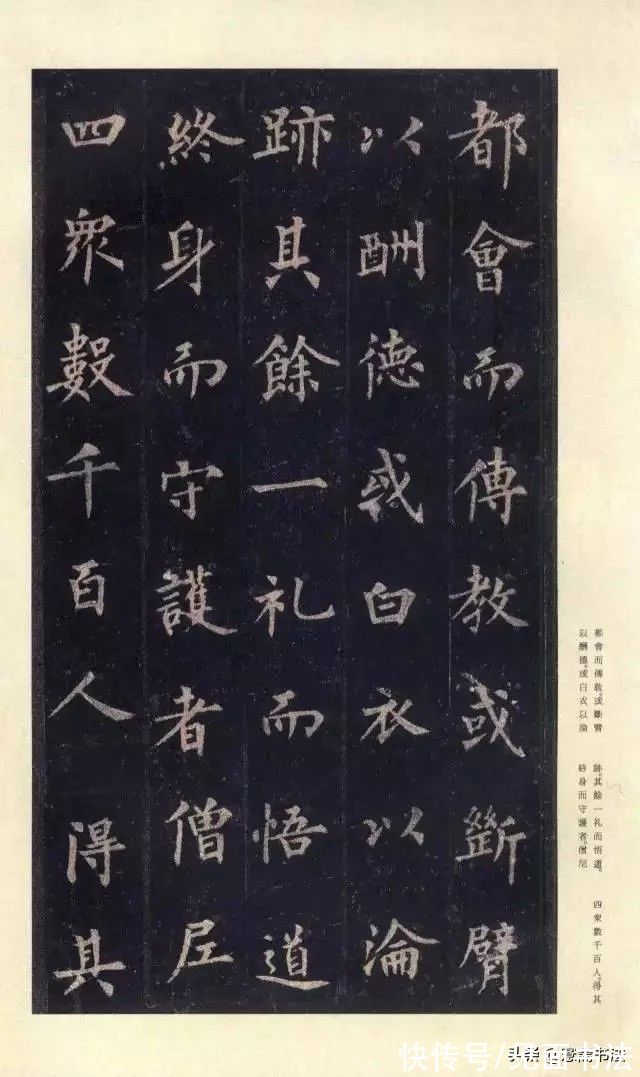 都會而傳教或斷臂
以酬德或白衣以淪
跡其餘一礼而悟道
終身而守護者僧尼
四衆數千百人得其
都會而傳教。或斷臂
以酬德。或白衣以淪
跡。其餘一礼而悟道。
終身而守護者。僧尼
四衆數千百人。得其
快传号/